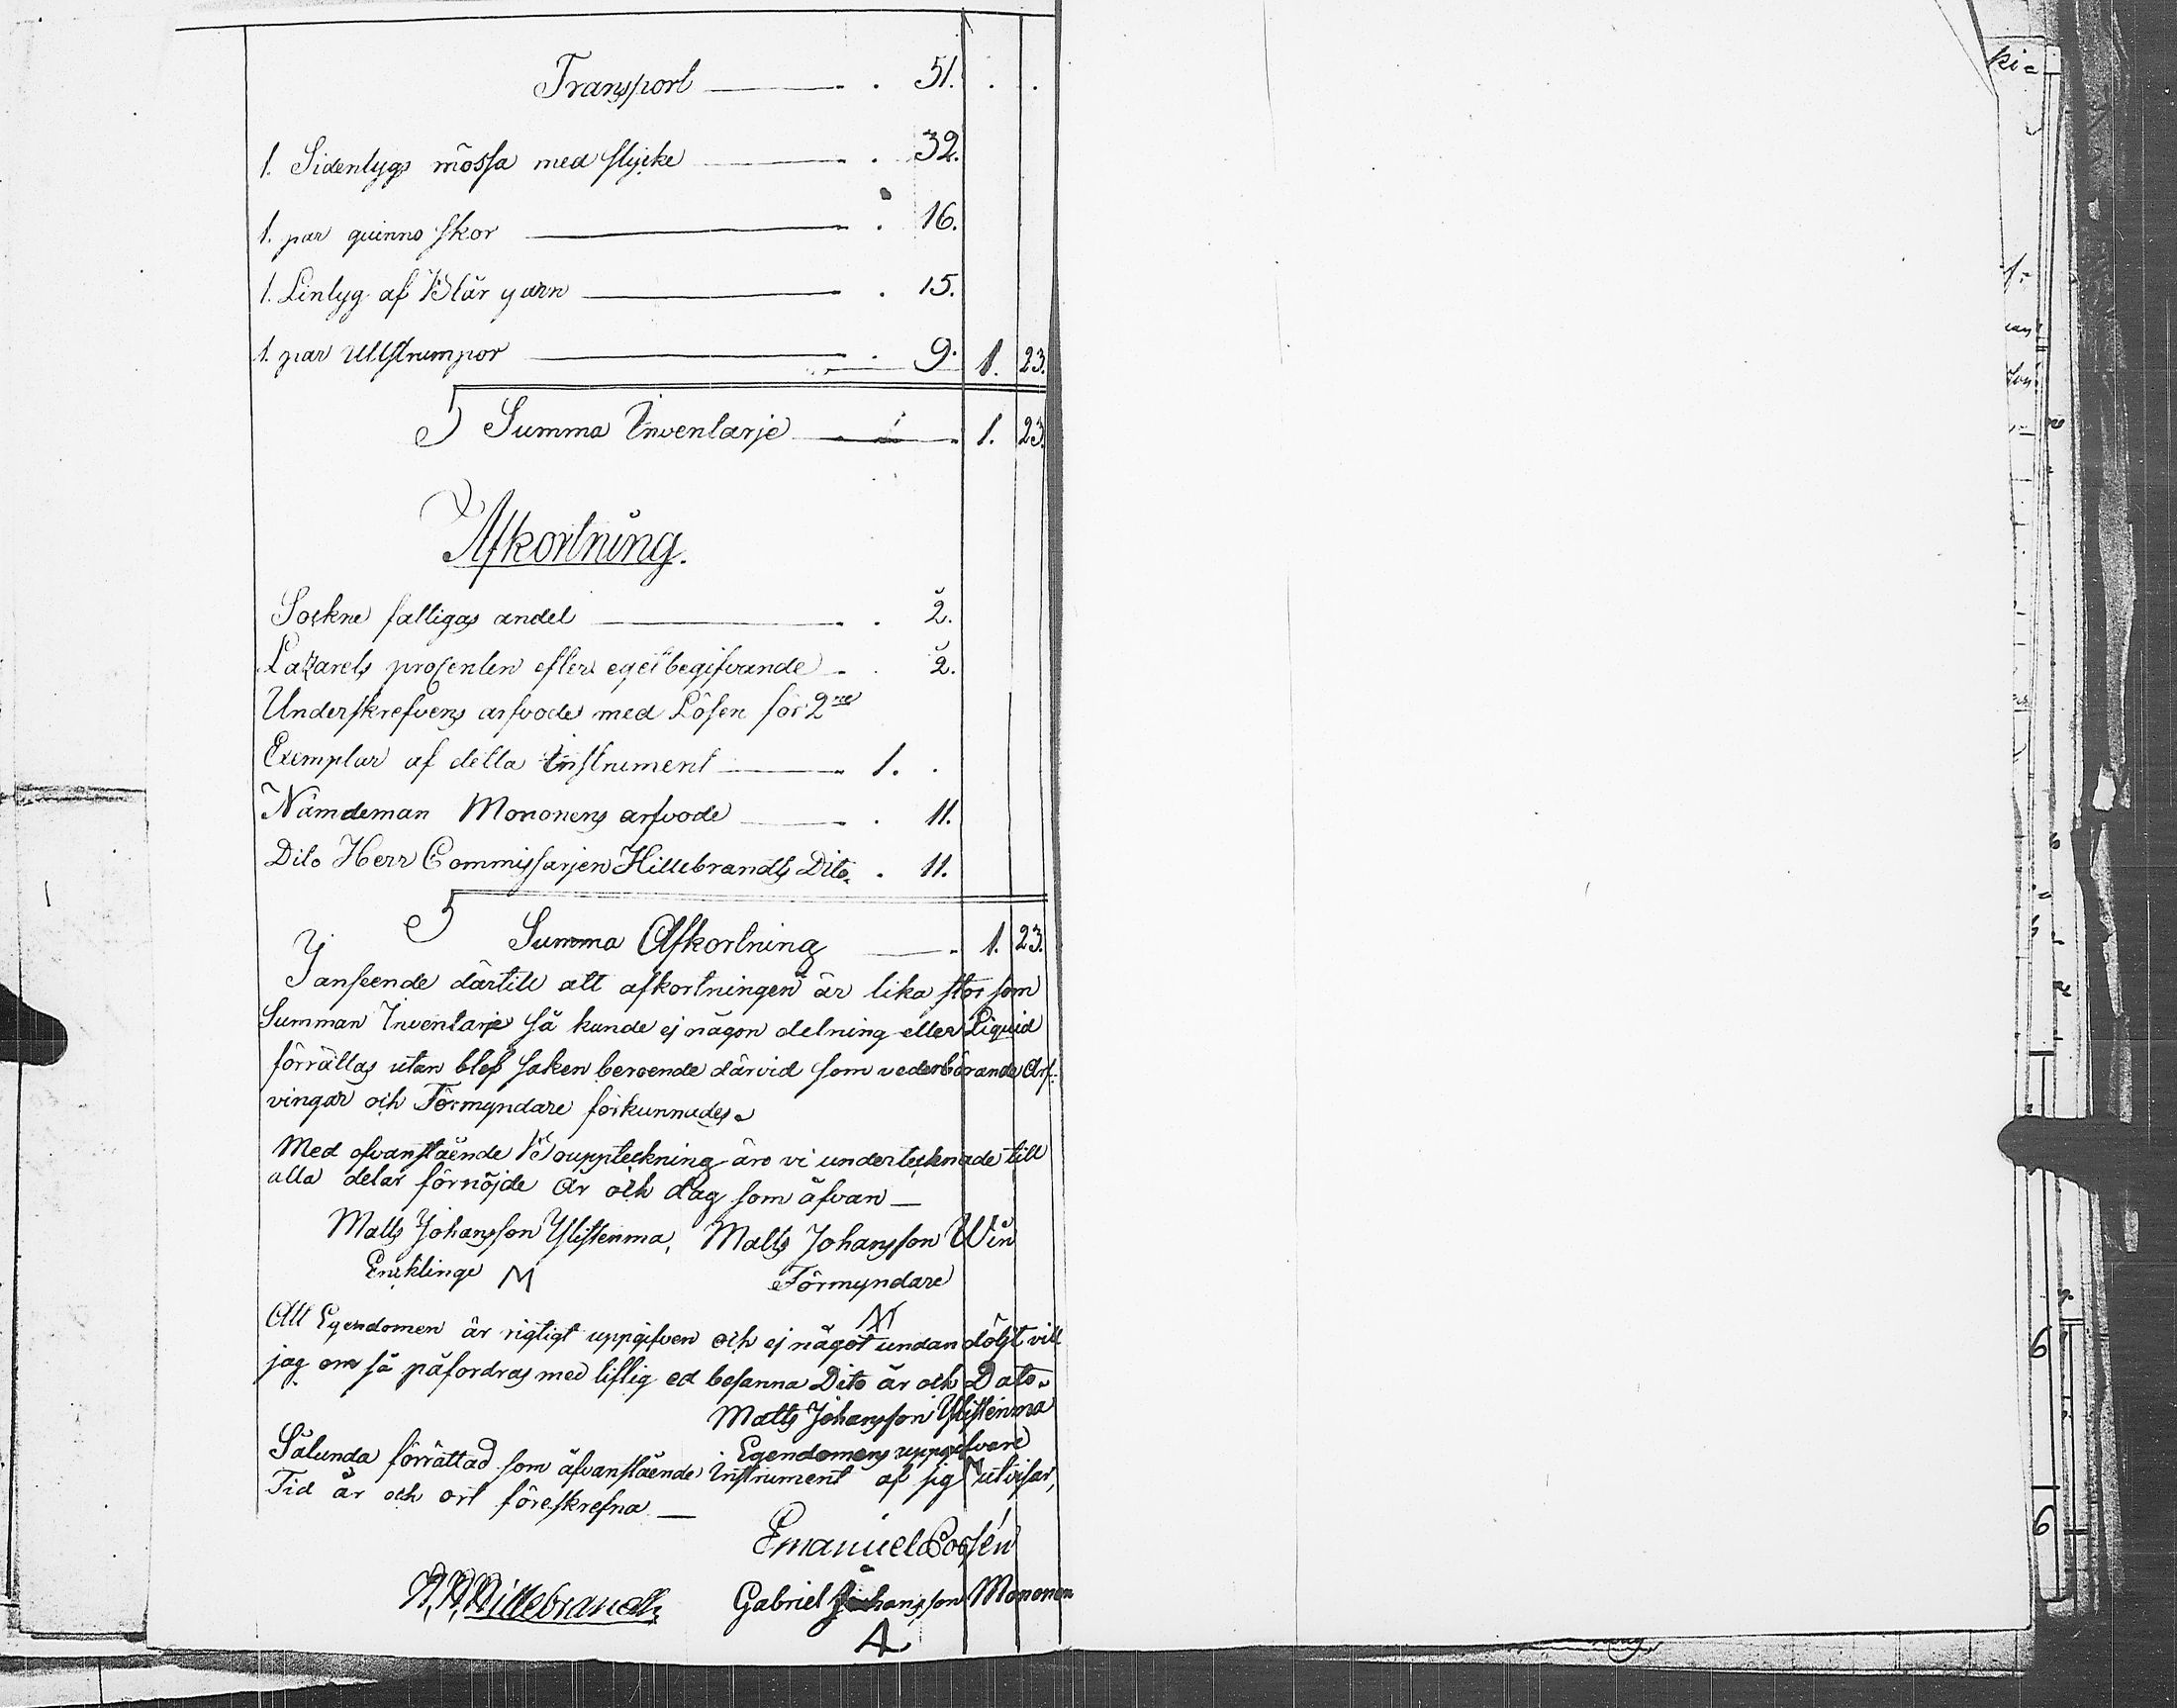 Transport . 51. . .
1. Sidentygs mössa med stycke . 32.
1. par quinno skor . 16.
1. Lintyg af Blår garn . 15.
1. par Ullstrumpor . 9. 1. 23.
Summa Inventarje 1. 23.
Afkortning.
Sockne fattigas andel . 2.
Lazarets procenten efter eget begifvande . 2.
Underskrefvens arfvode med Lösen för 2ne
Exemplar af detta instrument 1. .
Nämdeman Mononens arfvode . 11.
Dito Herr Commissarjen Hillebrandts Dito . 11.
Summa Afkortning 1. 23.
I anseende därtill att afkortningen är lika stor som
Summan Inventarje så kunde ej någon delning eller Liquid
förrättas utan blef saken beroende därvid som vederbörande Arf-
vingar och Förmyndare förkunnades
Med ofvanstående Bouppteckning äro vi undertecknade till
alla delar förnöjde År och dag som åfvan
Matts Johansson Ylistenma, Matts Johansson Win
Encklinge M Förmyndare
M
Att Egendomen är rigtigt uppgifven och ej något undandöljt vill
jag om så påfordras med liflig ed besanna Dito år och Dato
Matts Johansson Ylistenma
Egendomens uppgifvare
Sålunda förrättad som åfvanstående Instrument af sig utvisar,
Tid år och ort föreskrefna
Emanuel
Hillebrandt Gabriel Johansson Mononen